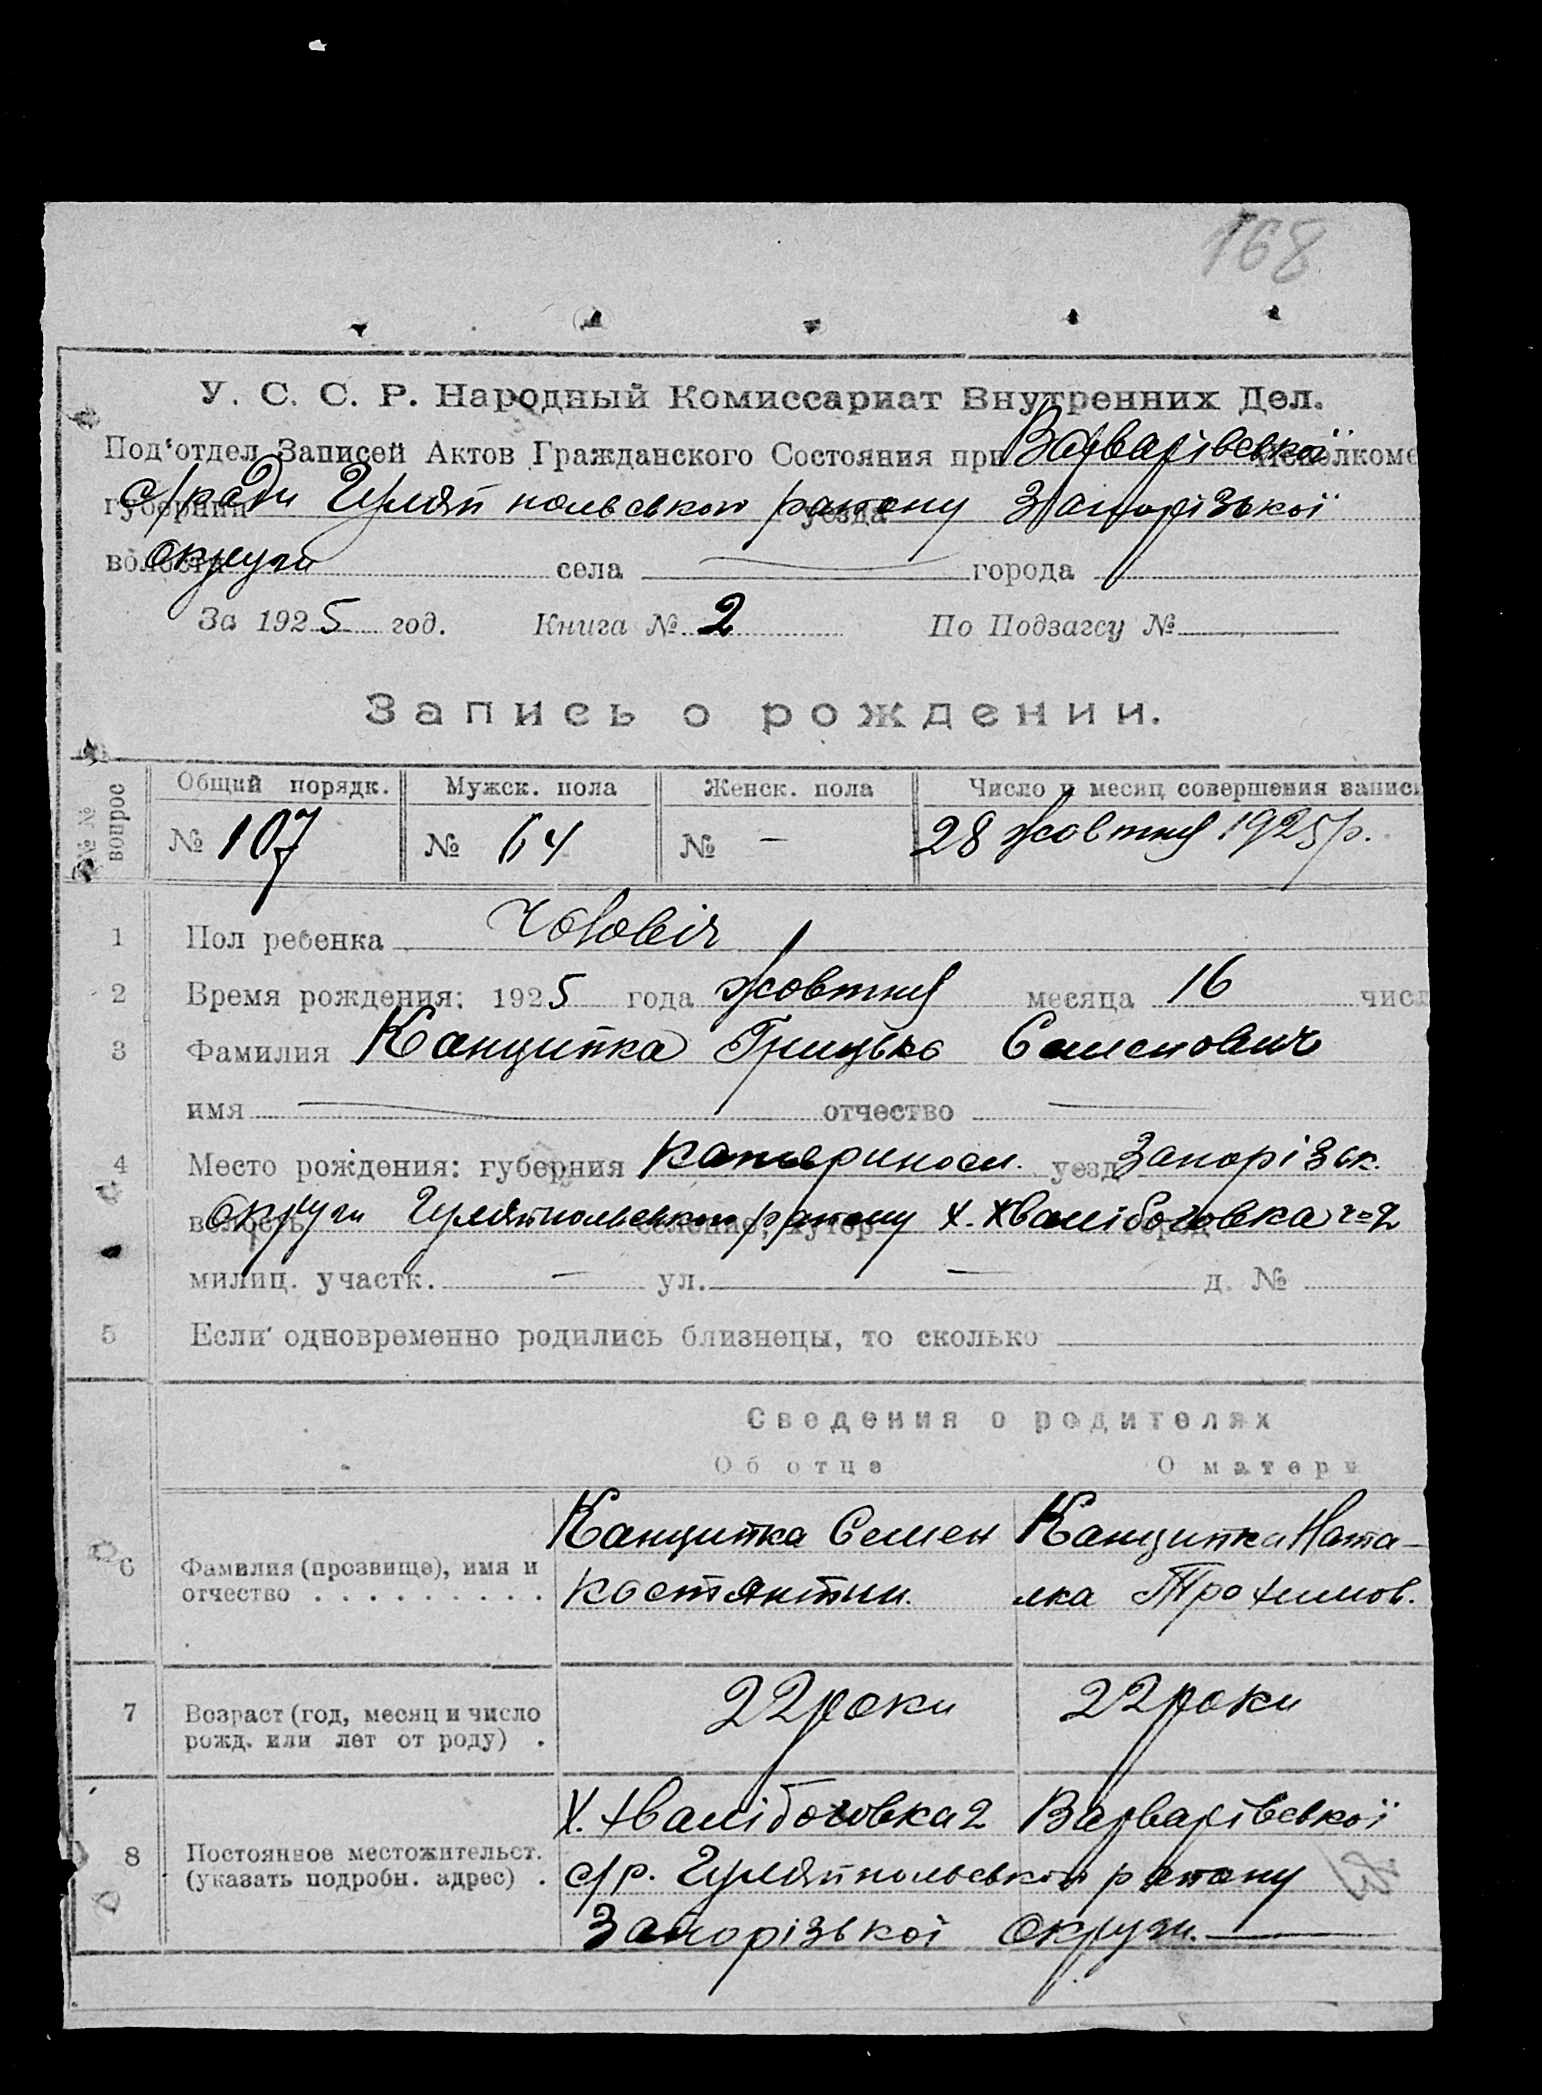 168
У. С. С. Р. Народный Комиссариат Внутренних Дел.
Под'отдел Записей Актов Гражданского Состояния при Варварівської Исполкоме
губернии с/ради Гуляйпольського району уезда Запорізької
волости округи села — города
За 1925 год. Книга № 2 По Подзагсу №
Запись о рождении.
№№ вопрос Общий порядк. Мужск. пола Женск. пола Число и месяц совершения записи
№ 107 № 64 № - 28 жовтня 1925 р.
1 Пол ребенка чоловіч
2 Время рождения: 1925 года жовтня месяца 16 числ
3 Фамилия Канципка Грицько Семенович
имя — отчество —
4 Место рождения: губерния Катериносл. уезд Запорізьк.
волость округи Гуляйпольського селение, хутор району х. Хвалібоговка город № 2
милиц. участк. — ул. — д. №
5 Если одновременно родились близнецы, то сколько
Сведения о родителях
Об отце О матери
6 Фамилия (прозвище), имя и отчество . . . . . . . . .
Канципка Семен Костянтин.
Канципка Ната-лка Трохимов.
7 Возраст (год, месяц и число рожд. или лет от роду) .
22 роки 22 роки
8 Постоянное местожительст. (указать подробн. адрес) .
х. Хвалібоговка 2 Варварівської
с/р. Гуляйпольського району
Запорізької округи.